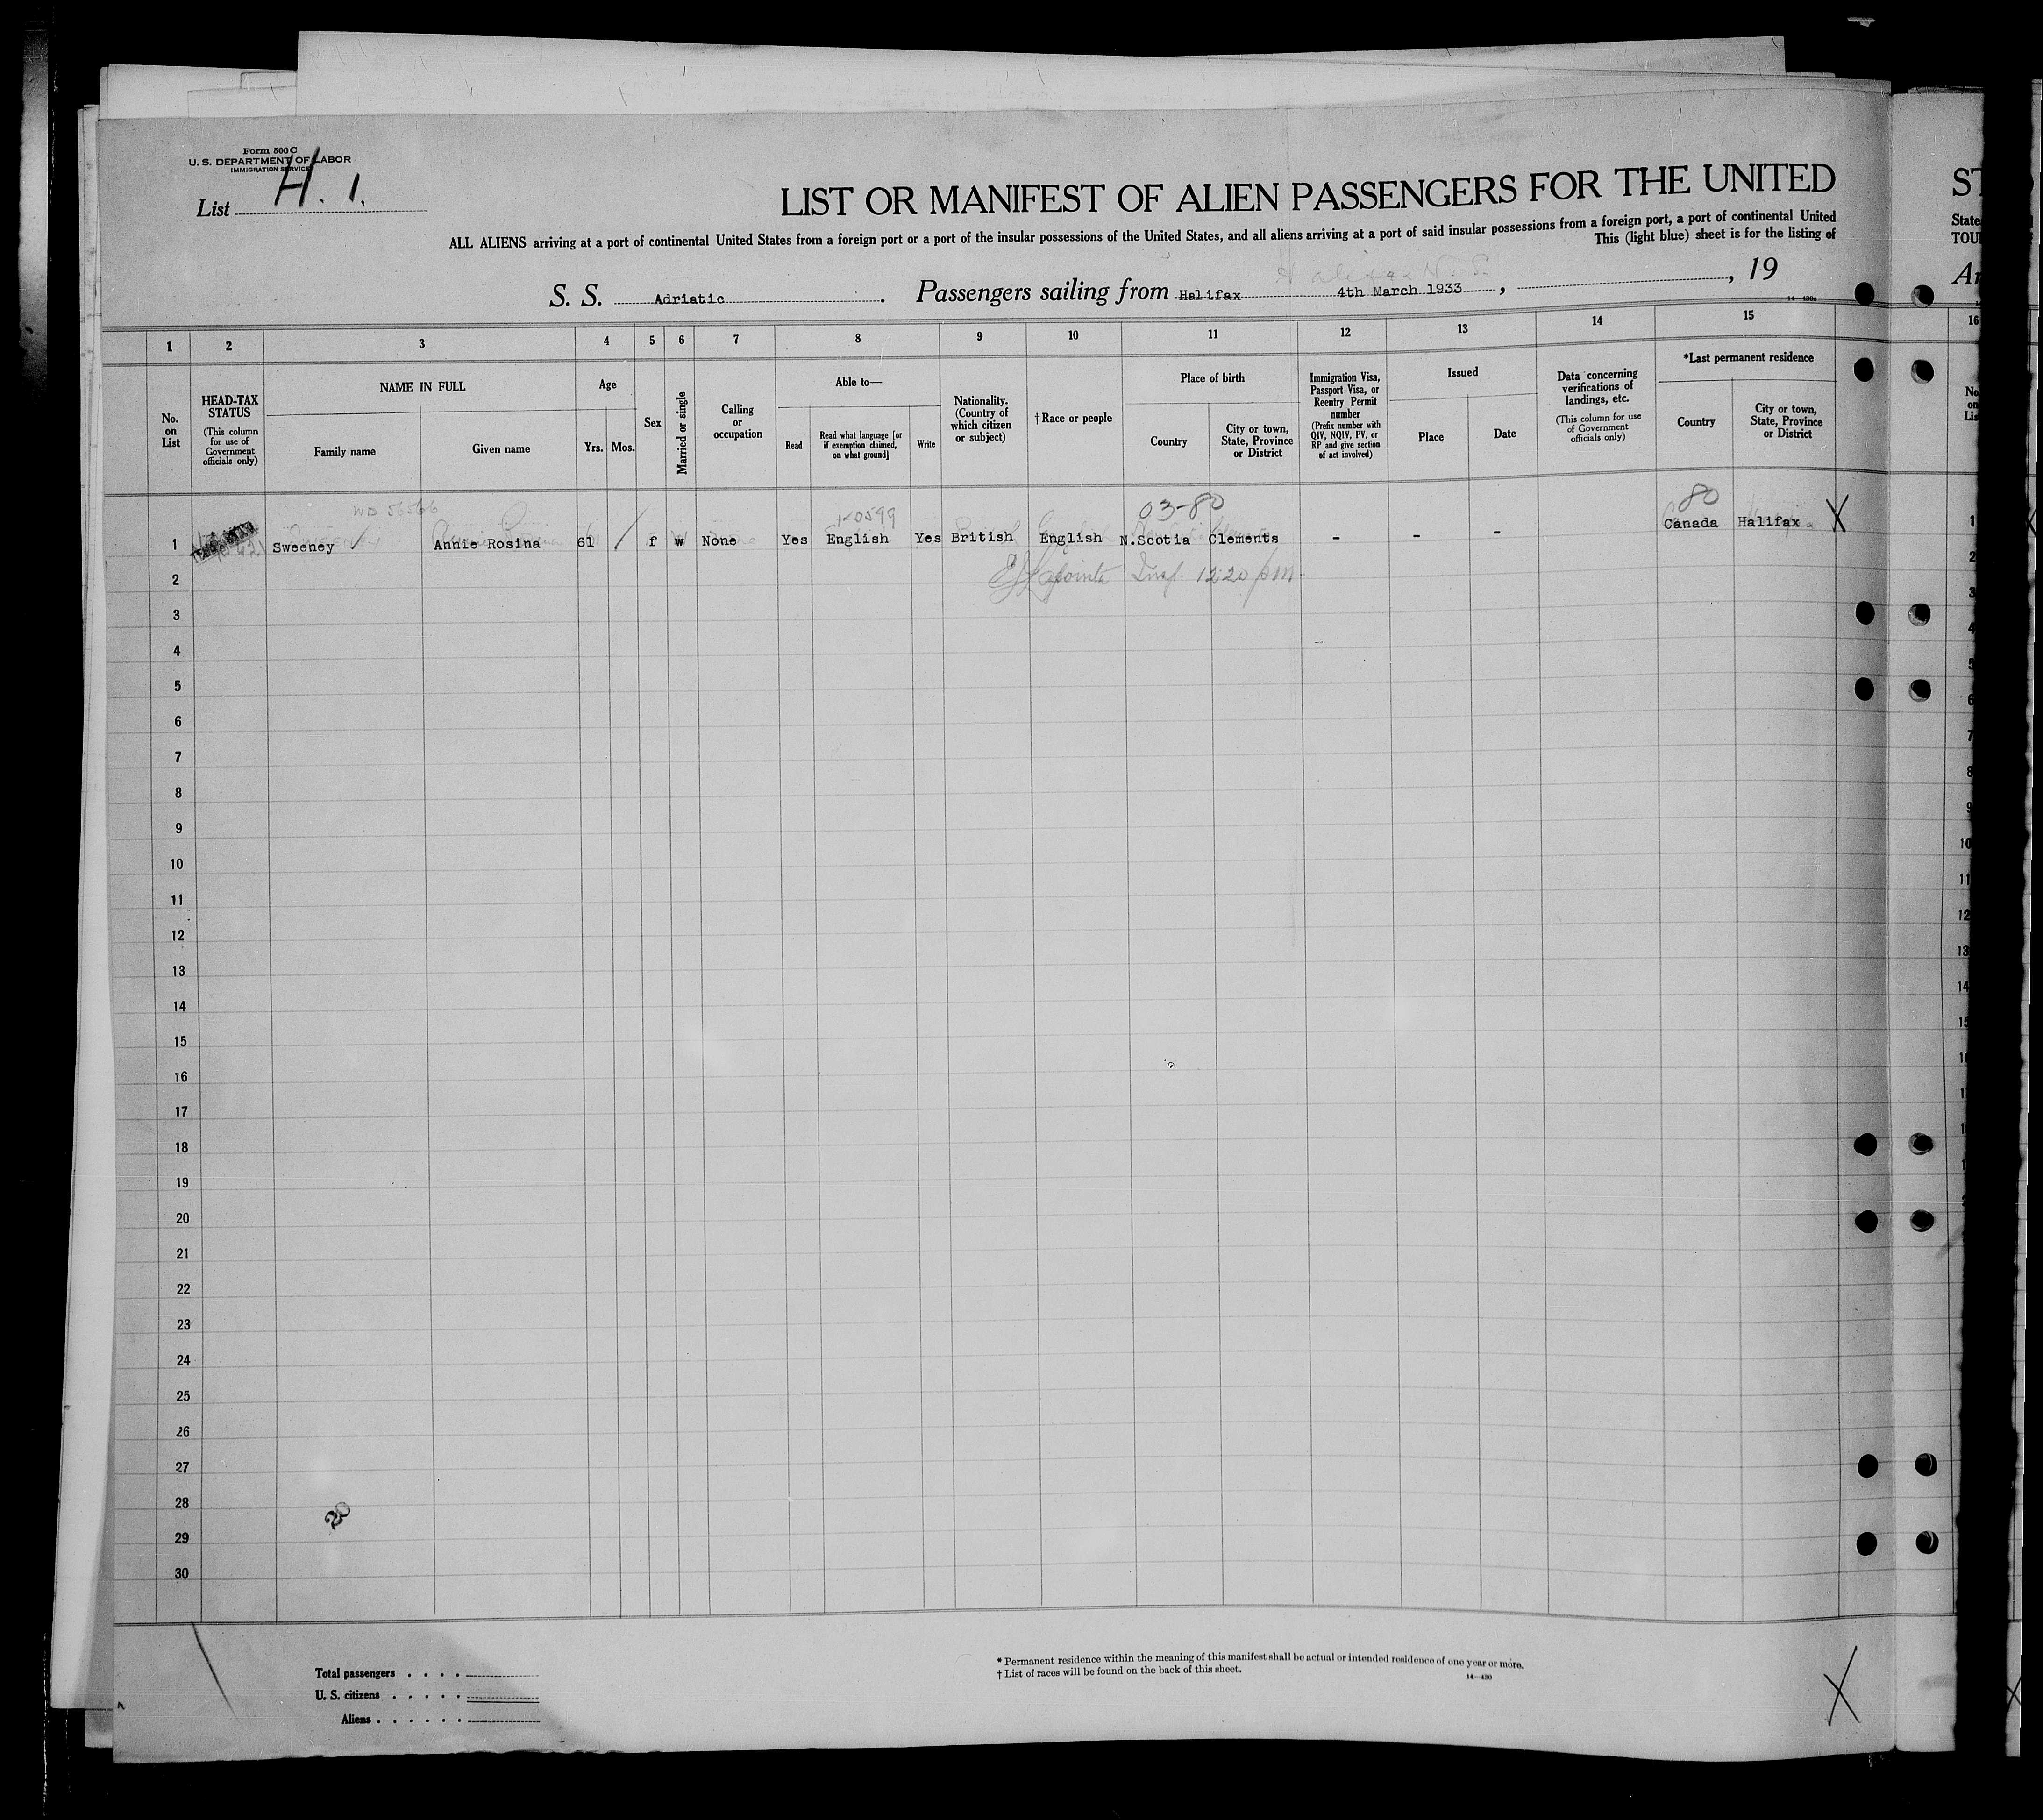 Form 500 C
U. S. DEPARTMENT OF LABOR
IMMIGRATION SERVICE
List H. 1.
LIST OR MANIFEST OF ALIEN PASSENGERS FOR THE UNITED
ST
ALL ALIENS arriving at a port of continental United States from a foreign port or a port of the insular possessions of the United States, and all aliens arriving at a port of said insular possessions from a foreign port, a port of continental United
State
This (light blue) sheet is for the listing of
TOU
Halifax N. S.
S. S. Adriatic . Passengers sailing from Halifax 4th March 1933 , , 19
Ar
1 2 3 4 5 6 7 8 9 10 11 12 13 14 15
16
No. on List
HEAD-TAX STATUS
(This column for use of Government officials only)
NAME IN FULL
Family name
Given name
Age
Yrs.
Mos.
Sex
Married or single
Calling or occupation
Able to—
Read
Read what language [or if exemption claimed, on what ground]
Write
Nationality. (Country of which citizen or subject)
† Race or people
Place of birth
Country
City or town, State, Province or District
Immigration Visa, Passport Visa, or Reentry Permit number
(Prefix number with QIV, NQIV, PV, or RP and give section of act involved)
Issued
Place
Date
Data concerning verifications of landings, etc.
(This column for use of Government officials only)
*Last permanent residence
Country
City or town, State, Province or District
No. on Lis
03-80
80
1 Sweeney Annie Rosina 61 / f w None Yes English Yes British English N.Scotia Clements - - - Canada Halifax X
Lapointe Insp. 12:20 pm
2
3
4
5
6
7
8
9
10
11
12
13
14
15
16
17
18
19
20
21
22
23
24
25
26
27
28
29
30
20
Total passengers . . . .
U. S. citizens . . . . .
Aliens . . . . . .
* Permanent residence within the meaning of this manifest shall be actual or intended residence of one year or more.
† List of races will be found on the back of this sheet.
14—430
X